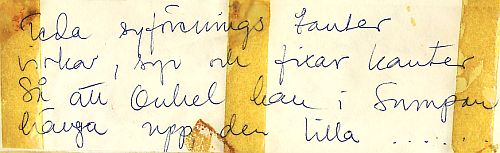 Reda syförenings tanter
virkar, syr och fixar kanter
Så att Onkel kan i Sumpan
hänga upp den lilla ......